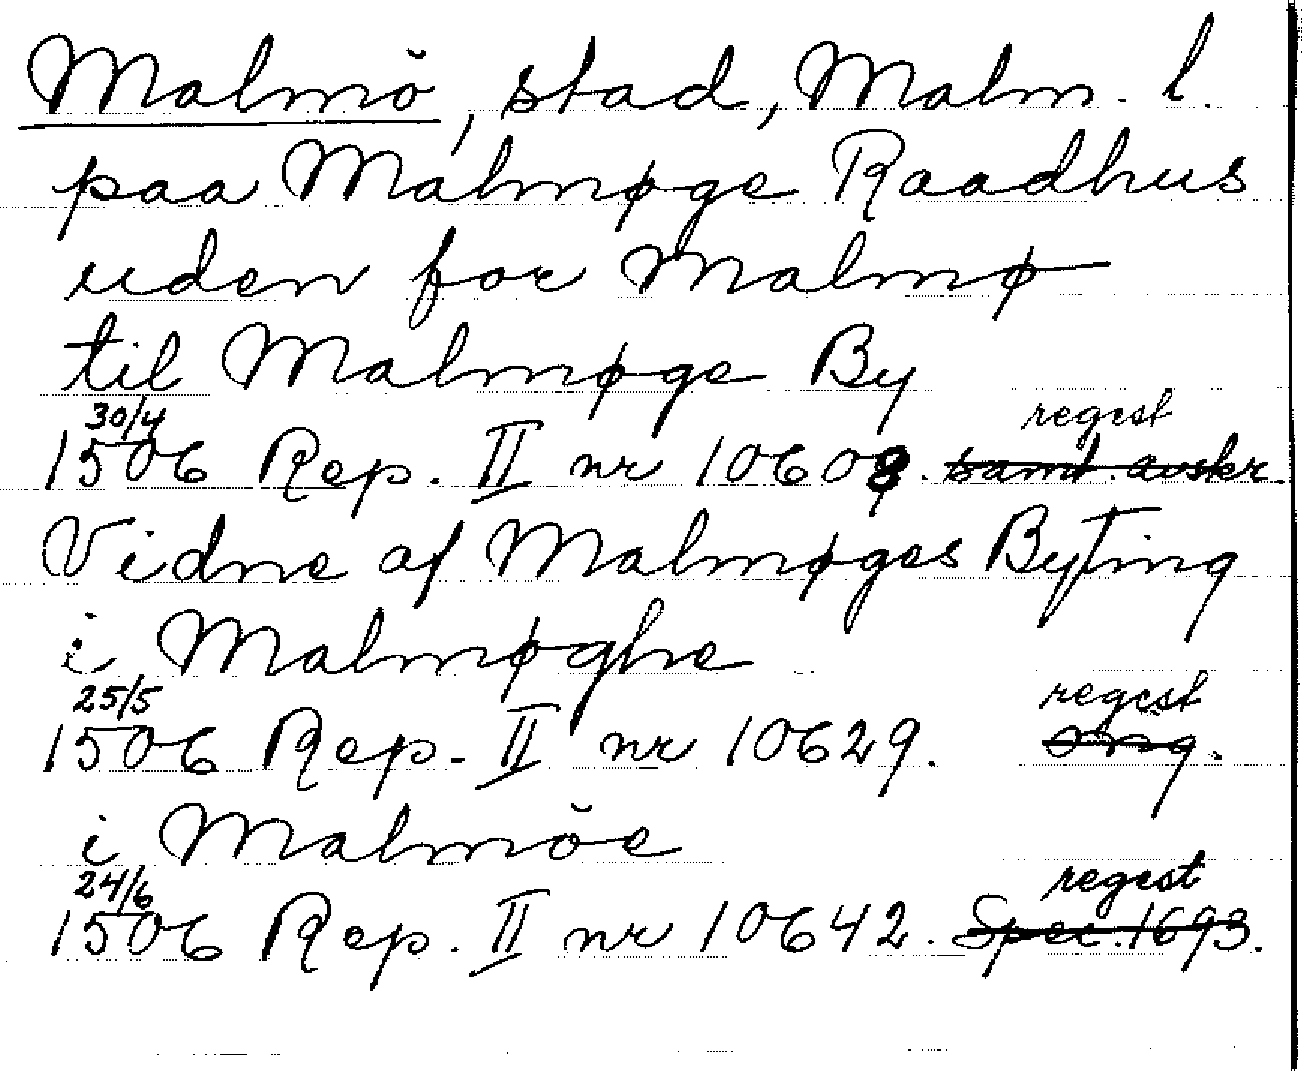 Malmö, stad, Malm. l.
paa Malmøge Raadhus
uden for Malmø
til Malmøge By
30/4 regest
1506 Rep. II nr 10608. samt. avskr.
Vidne af Malmøges Byting
i Malmøghe
25/5 regest
1506 Rep. II nr 10629. Orig.
i Malmöe
24/6 regest
1506 Rep. II nr 10642. Spec. 1693.